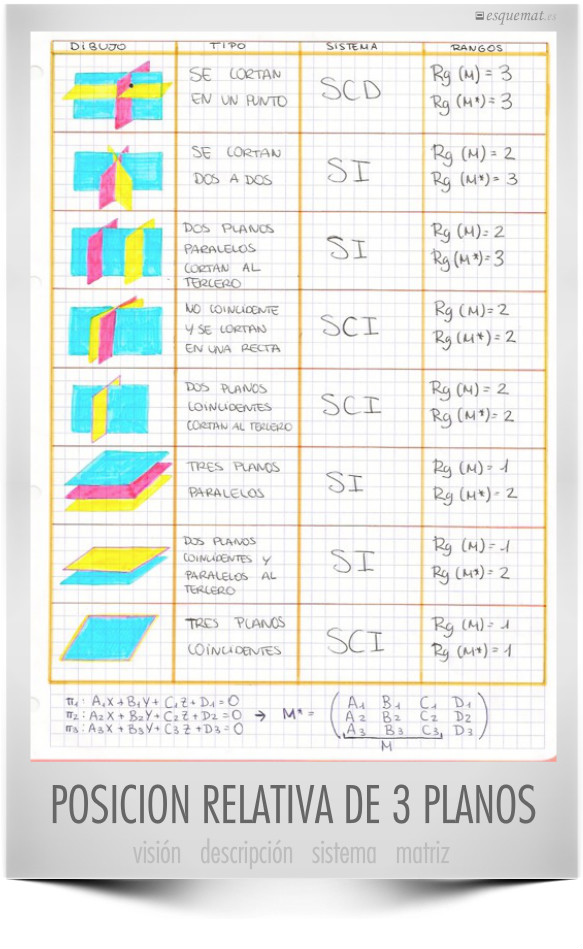 esquemat.es
DIBUJO TIPO SISTEMA RANGOS
SE CORTAN
EN UN PUNTO
SCD
Rg (M) = 3
Rg (M*) = 3
SE CORTAN
DOS A DOS
SI
Rg (M) = 2
Rg (M*) = 3
DOS PLANOS
PARALELOS
CORTAN AL
TERCERO
SI
Rg (M) = 2
Rg (M*) = 3
NO COINCIDENTE
Y SE CORTAN
EN UNA RECTA
SCI
Rg (M) = 2
Rg (M*) = 2
DOS PLANOS
COINCIDENTES
CORTAN AL TERCERO
SCI
Rg (M) = 2
Rg (M*) = 2
TRES PLANOS
PARALELOS
SI
Rg (M) = 1
Rg (M*) = 2
DOS PLANOS
COINCIDENTES Y
PARALELOS AL
TERCERO
SI
Rg (M) = 1
Rg (M*) = 2
TRES PLANOS
COINCIDENTES
SCI
Rg (M) = 1
Rg (M*) = 1
π₁: A₁X + B₁Y + C₁Z + D₁ = 0
π₂: A₂X + B₂Y + C₂Z + D₂ = 0 → M* =
π₃: A₃X + B₃Y + C₃Z + D₃ = 0
A₁ B₁ C₁ D₁
A₂ B₂ C₂ D₂
A₃ B₃ C₃ D₃
M
POSICION RELATIVA DE 3 PLANOS
visión descripción sistema matriz